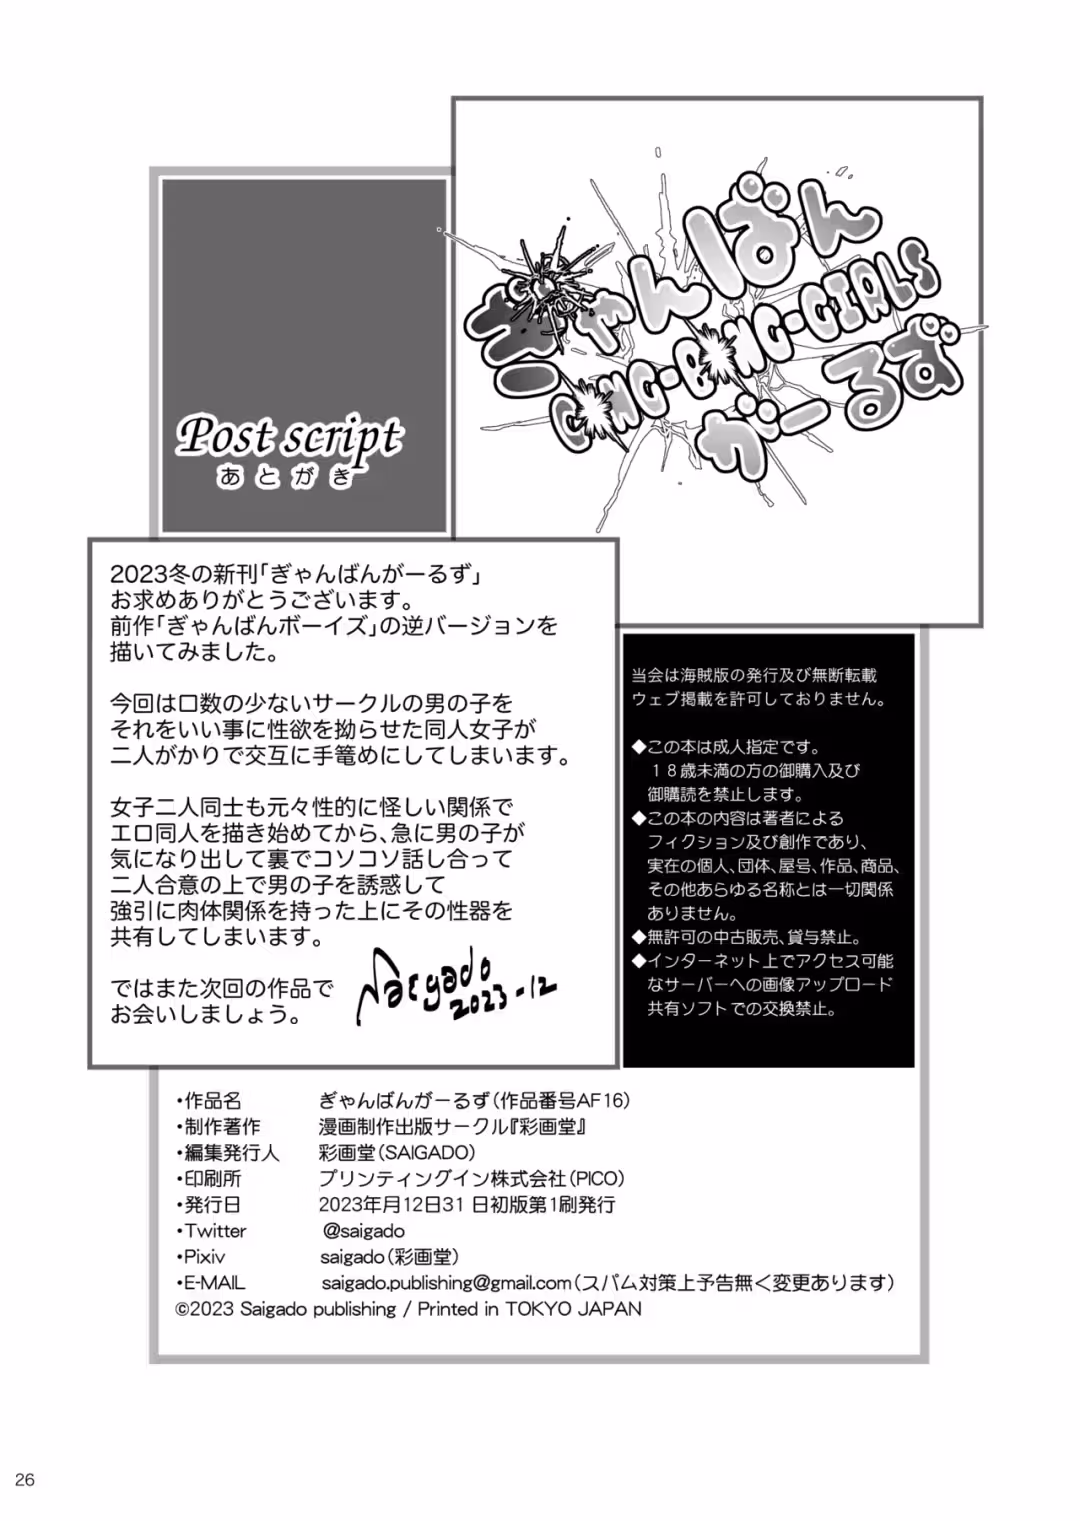 ぎゃんばん
GANG-BANG-GIRLS
がーるず
Post script
あとがき
2023冬の新刊「ぎゃんばんがーるず」
お求めありがとうございます。
前作「ぎゃんばんボーイズ」の逆バージョンを
描いてみました。
今回は口数の少ないサークルの男の子を
それをいい事に性欲を拗らせた同人女子が
二人がかりで交互に手篭めにしてしまいます。
女子二人同士も元々性的に怪しい関係で
エロ同人を描き始めてから、急に男の子が
気になり出して裏でコソコソ話し合って
二人合意の上で男の子を誘惑して
強引に肉体関係を持った上にその性器を
共有してしまいます。
ではまた次回の作品で
お会いしましょう。
Saigado
2023-12
当会は海賊版の発行及び無断転載
ウェブ掲載を許可しておりません。
◆この本は成人指定です。
18歳未満の方の御購入及び
御購読を禁止します。
◆この本の内容は著者による
フィクション及び創作であり、
実在の個人、団体、屋号、作品、商品、
その他あらゆる名称とは一切関係
ありません。
◆無許可の中古販売、貸与禁止。
◆インターネット上でアクセス可能
なサーバーへの画像アップロード
共有ソフトでの交換禁止。
・作品名 ぎゃんばんがーるず（作品番号AF16）
・制作著作 漫画制作出版サークル『彩画堂』
・編集発行人 彩画堂（SAIGADO）
・印刷所 プリンティングイン株式会社（PICO）
・発行日 2023年月12日31 日初版第1刷発行
・Twitter @saigado
・Pixiv saigado（彩画堂）
・E-MAIL saigado.publishing@gmail.com（スパム対策上予告無く変更あります）
©2023 Saigado publishing / Printed in TOKYO JAPAN
26